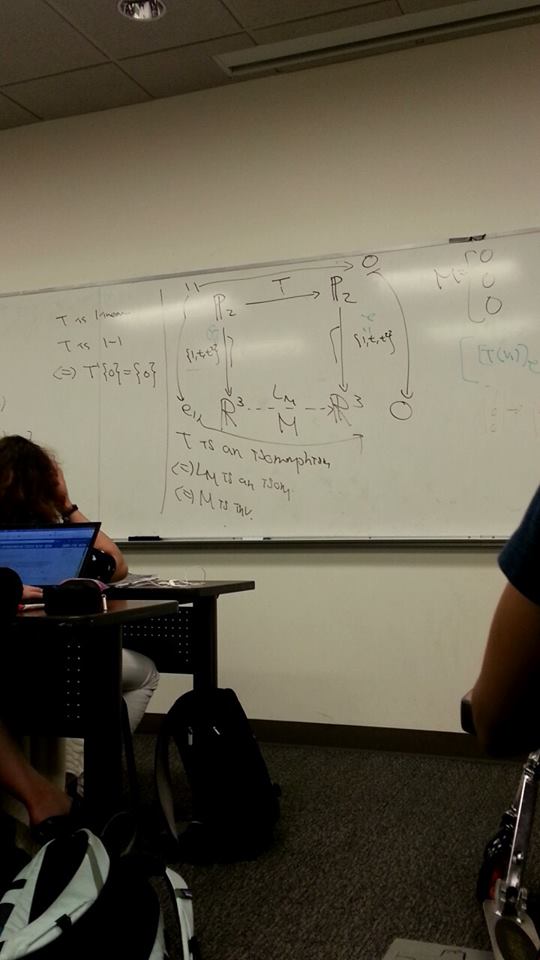 T is linear
T is 1-1
(=) T{0}={0}
"1" 0
P₂ T P₂
{1,t,t²} {1,t,t²}
e₁ R³ L_M R³ 0
M
T is an isomorphism
(=) L_M is an isom.
(=) M is inv.
M= 0
0
0
[T(v₁)]e